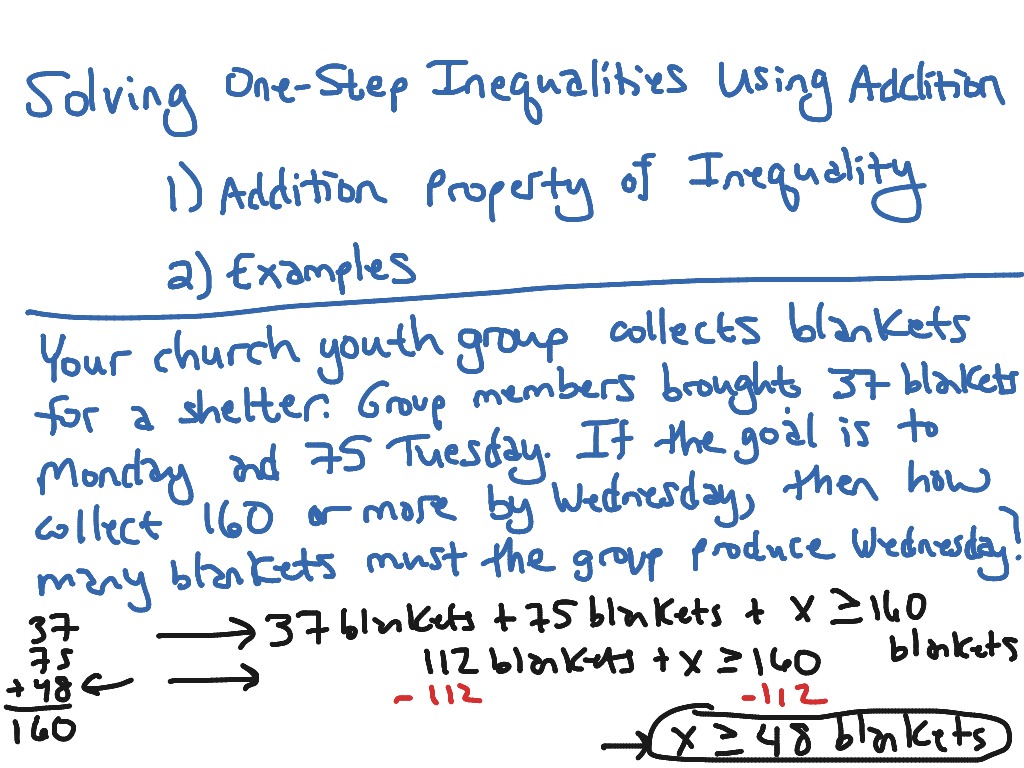 Solving One-Step Inequalities Using Addition
1) Addition Property of Inequality
2) Examples
Your church youth group collects blankets
for a shelter. Group members broughts 37 blankets
Monday and 75 Tuesday. If the goal is to
collect 160 or more by Wednesday, then how
many blankets must the group produce Wednesday?
37 → 37 blankets + 75 blankets + x ≥ 160
blankets
75
+ 48 ← → 112 blankets + x ≥ 160
- 112 - 112
160
→ x ≥ 48 blankets